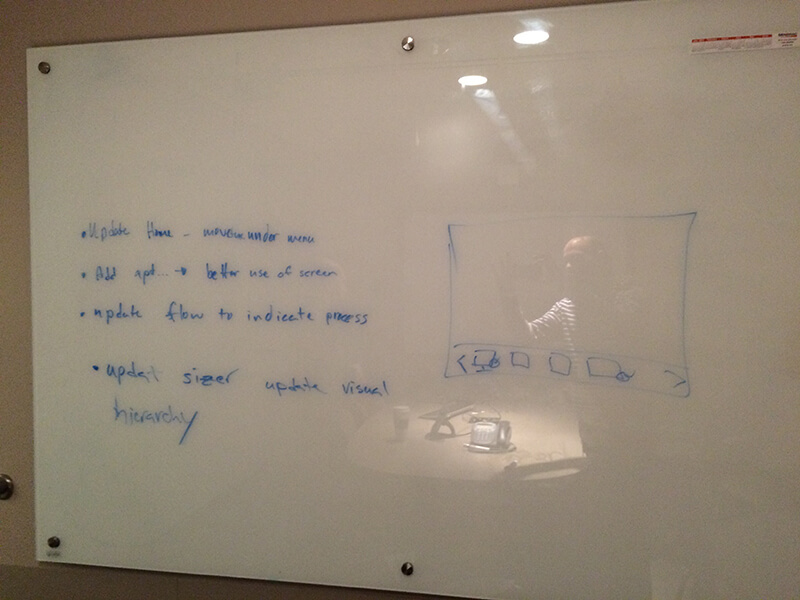 • Update Home - under menu
• Add apt... → better use of screen
• update flow to indicate process
• updat sizer update visual
hierarchy